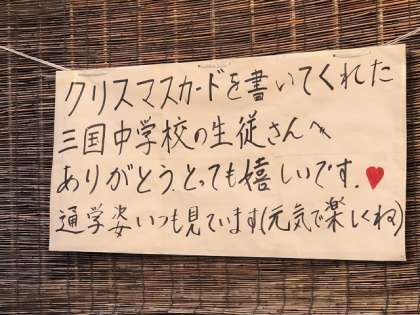 クリスマスカードを書いてくれた
三国中学校の生徒さんへ
ありがとう、とっても嬉しいです。♥
通学姿いつも見ています(元気で楽しくね)